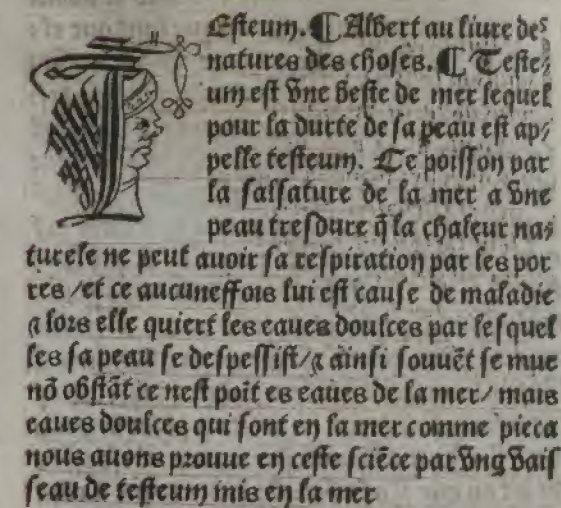 TEsteum. ¶ Albert au liure des
natures des choses. ¶ Teste⸗
um est vne beste de mer lequel
pour la durte de sa peau est ap⸗
pelle testeum. Ce poisson par
la salsature de la mer a vne
peau tresdure q̃ la chaleur na⸗
turele ne peut auoir sa respiration par les por
res /et ce aucuneffois lui est cause de maladie
⁊ lors elle quiert les eaues doulces par lesquel
les sa peau se despessist/⁊ ainsi souuēt se mue
nō obstāt ce nest poīt es eaues de la mer/ mais
eaues doulces qui sont en la mer comme pieca
nous auons prouue en ceste sciēce par vng vais
seau de testeum mis en la mer